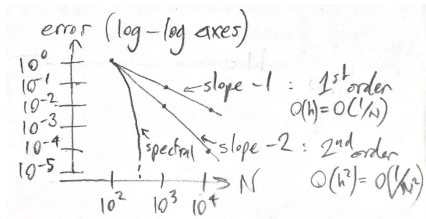 error (log-log axes)
N
10⁰
10⁻¹
10⁻²
10⁻³
10⁻⁴
10⁻⁵
slope -1 : 1st order
O(h)=O(1/N)
spectral
slope -2 : 2nd order
O(h²)=O(1/N²)
N
10² 10³ 10⁴